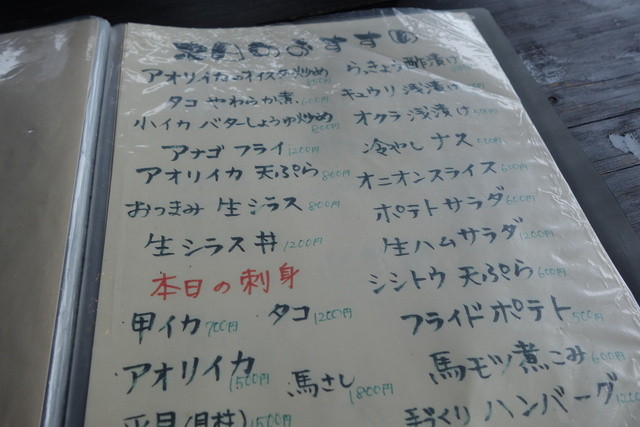 のおすすめ
アオリイカのオイスター炒め
タコ やわらか煮 600円
小イカ バターしょうゆ炒め 800円
アナゴ フライ 1200円
アオリイカ 天ぷら 800円
おつまみ 生シラス 800円
生シラス丼 1200円
本日の刺身
甲イカ 700円 タコ 1200円
アオリイカ 1500円
馬さし 1800円
平貝(貝柱) 1500円
らっきょう酢漬け
キュウリ 浅漬け
オクラ 浅漬け
冷やし ナス
オニオンスライス 600円
ポテトサラダ 600円
生ハムサラダ 1200円
シシトウ 天ぷら 600円
フライドポテト 500円
馬モツ煮こみ 600円
手づくり ハンバーグ